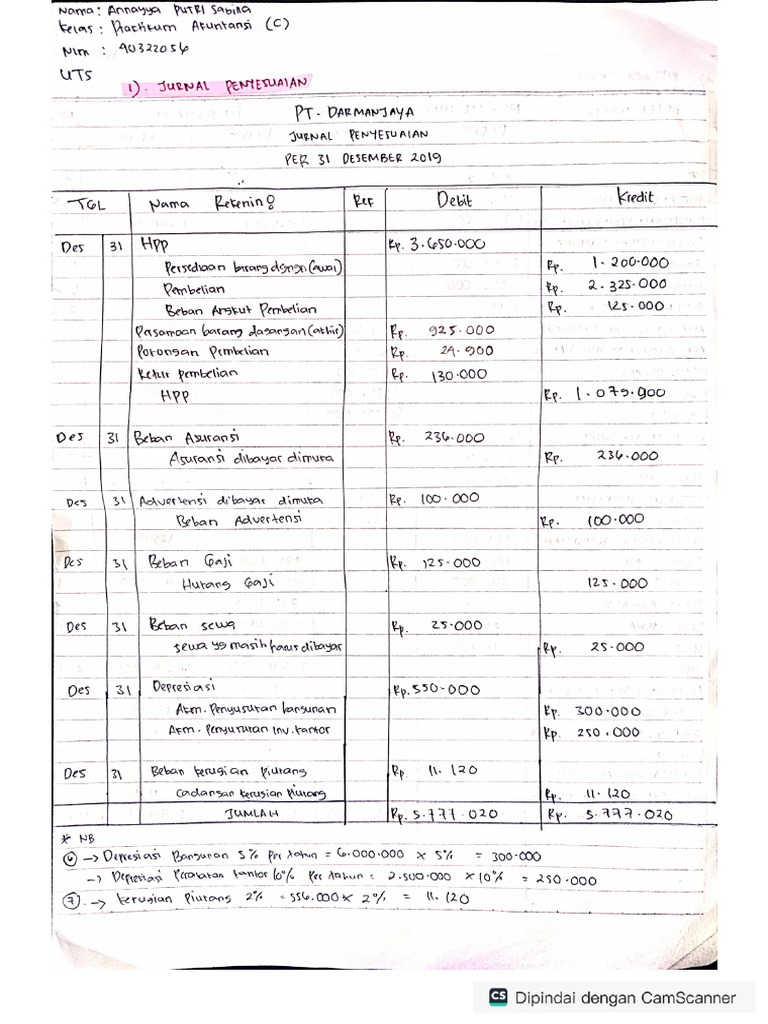 Nama : Annayya PUTRI Sabina
Kelas : Praktikum Akuntansi (C)
Nim : 90322056
UTS
1). JURNAL PENYESUAIAN
PT. DARMANJAYA
JURNAL PENYESUAIAN
PER 31 DESEMBER 2019
TGL Nama Rekening Ref Debit Kredit
Des 31 HPP Rp. 3.650.000
Persediaan barang dgngn (awal) Rp. 1.200.000
Pembelian Rp. 2.325.000
Beban Angkut Pembelian Rp. 125.000
Persamaan barang dagangan (akhir) Rp. 925.000
Potongan Pembelian Rp. 24.900
Retur pembelian Rp. 130.000
HPP Rp. 1.079.900
Des 31 Beban Asuransi Rp. 236.000
Asuransi dibayar dimuka Rp. 236.000
Des 31 Advertensi dibayar dimuka Rp. 100.000
Beban Advertensi Rp. 100.000
Des 31 Beban Gaji Rp. 125.000
Hutang Gaji 125.000
Des 31 Beban sewa Rp. 25.000
sewa yg masih harus dibayar Rp. 25.000
Des 31 Depresiasi Rp. 550.000
Akm. Penyusutan bangunan Rp. 300.000
Akm. Penyusutan Inv. kantor Rp. 250.000
Des 31 Beban kerugian piutang Rp. 11.120
Cadangan kerugian piutang Rp. 11.120
JUMLAH Rp. 5.777.020 Rp. 5.777.020
* NB
6 → Depresiasi Bangunan 5% per tahun = 6.000.000 × 5% = 300.000
→ Depresiasi Peralatan kantor 10% per tahun = 2.500.000 × 10% = 250.000
7. → kerugian Piutang 2% = 556.000 × 2% = 11.120
CS Dipindai dengan CamScanner